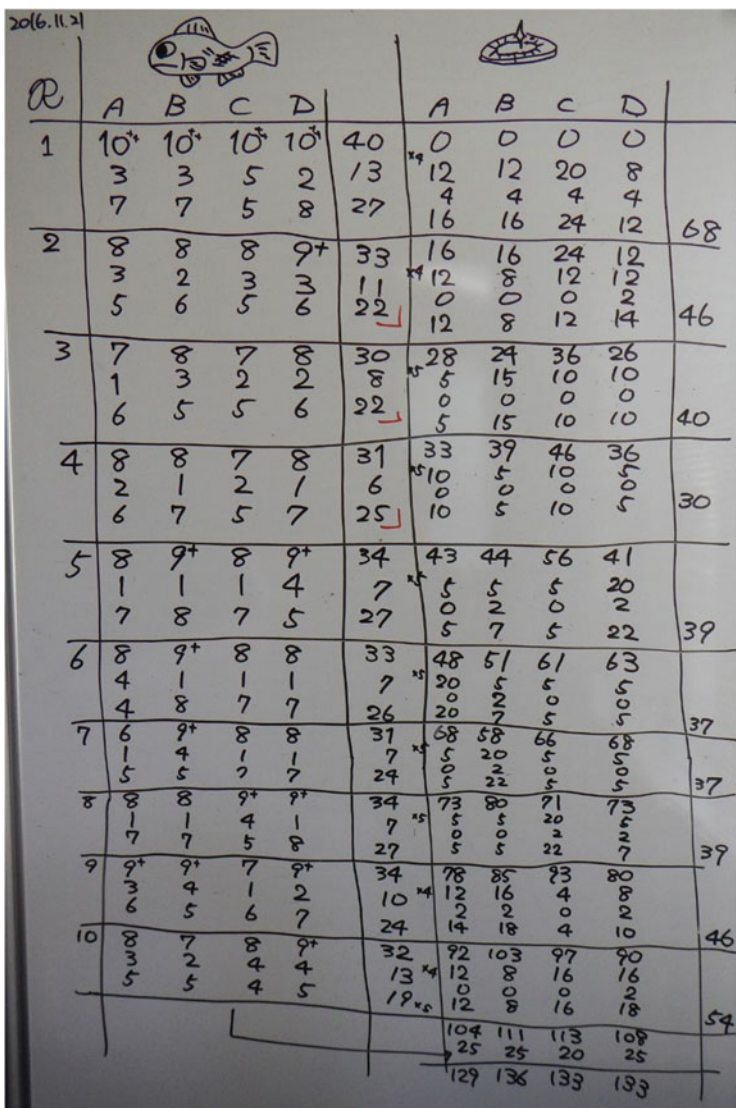 2016.11.21
R A B C D A B C D
1 10++ 10++ 10++ 10++ 40 0 0 0 0
3 3 5 2 13 ×4 12 12 20 8
7 7 5 8 27 4 4 4 4
16 16 24 12 68
2 8 8 8 9+ 33 16 16 24 12
3 2 3 3 11 ×4 12 8 12 12
5 6 5 6 22 0 0 0 2
12 8 12 14 46
3 7 8 7 8 30 28 24 36 26
1 3 2 2 8 ×5 5 15 10 10
6 5 5 6 22 0 0 0 0
5 15 10 10 40
4 8 8 7 8 31 33 39 46 36
2 1 2 1 6 ×5 10 5 10 5
6 7 5 7 25 0 0 0 0
10 5 10 5 30
5 8 9+ 8 9+ 34 43 44 56 41
1 1 1 4 7 ×5 5 5 5 20
7 8 7 5 27 0 2 0 2
5 7 5 22 39
6 8 9+ 8 8 33 48 51 61 63
4 1 1 1 7 ×5 20 5 5 5
4 8 7 7 26 0 2 0 0
20 7 5 5 37
7 6 9+ 8 8 31 68 58 66 68
1 4 1 1 7 ×5 5 20 5 5
5 5 7 7 24 0 2 0 0
5 22 5 5 37
8 8 8 9+ 9+ 34 73 80 71 73
1 1 4 1 7 ×5 5 5 20 5
7 7 5 8 27 0 0 2 2
5 5 22 7 39
9 9+ 9+ 7 9+ 34 78 85 93 80
3 4 1 2 10 ×4 12 16 4 8
6 5 6 7 24 2 2 0 2
14 18 4 10 46
10 8 7 8 9+ 32 92 103 97 90
3 2 4 4 13 ×4 12 8 16 16
5 5 4 5 19 ×5 0 0 0 2
12 8 16 18 54
104 111 113 108
25 25 20 25
129 136 133 133